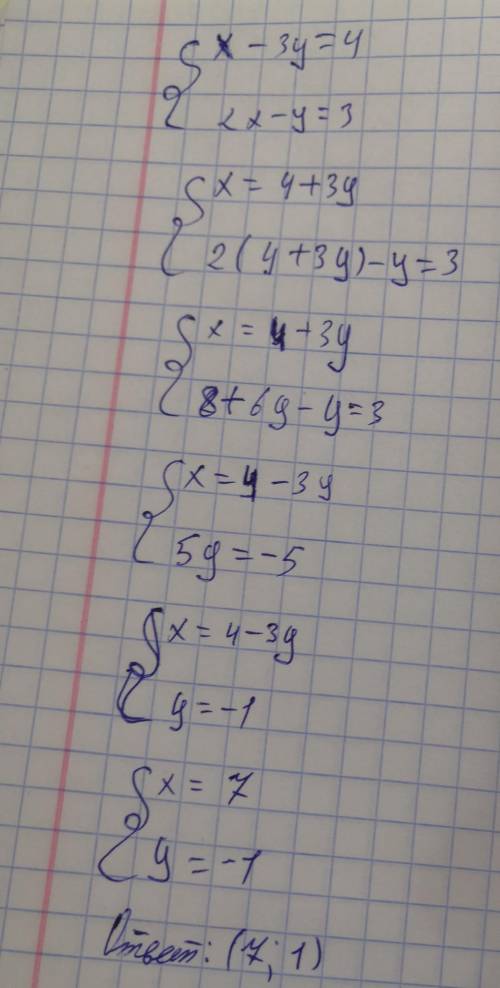 x - 3y = 4
2x - y = 3
x = 4 + 3y
2(4 + 3y) - y = 3
x = 4 + 3y
8 + 6y - y = 3
x = 4 - 3y
5y = -5
x = 4 - 3y
y = -1
x = 7
y = -1
Ответ: (7; 1)